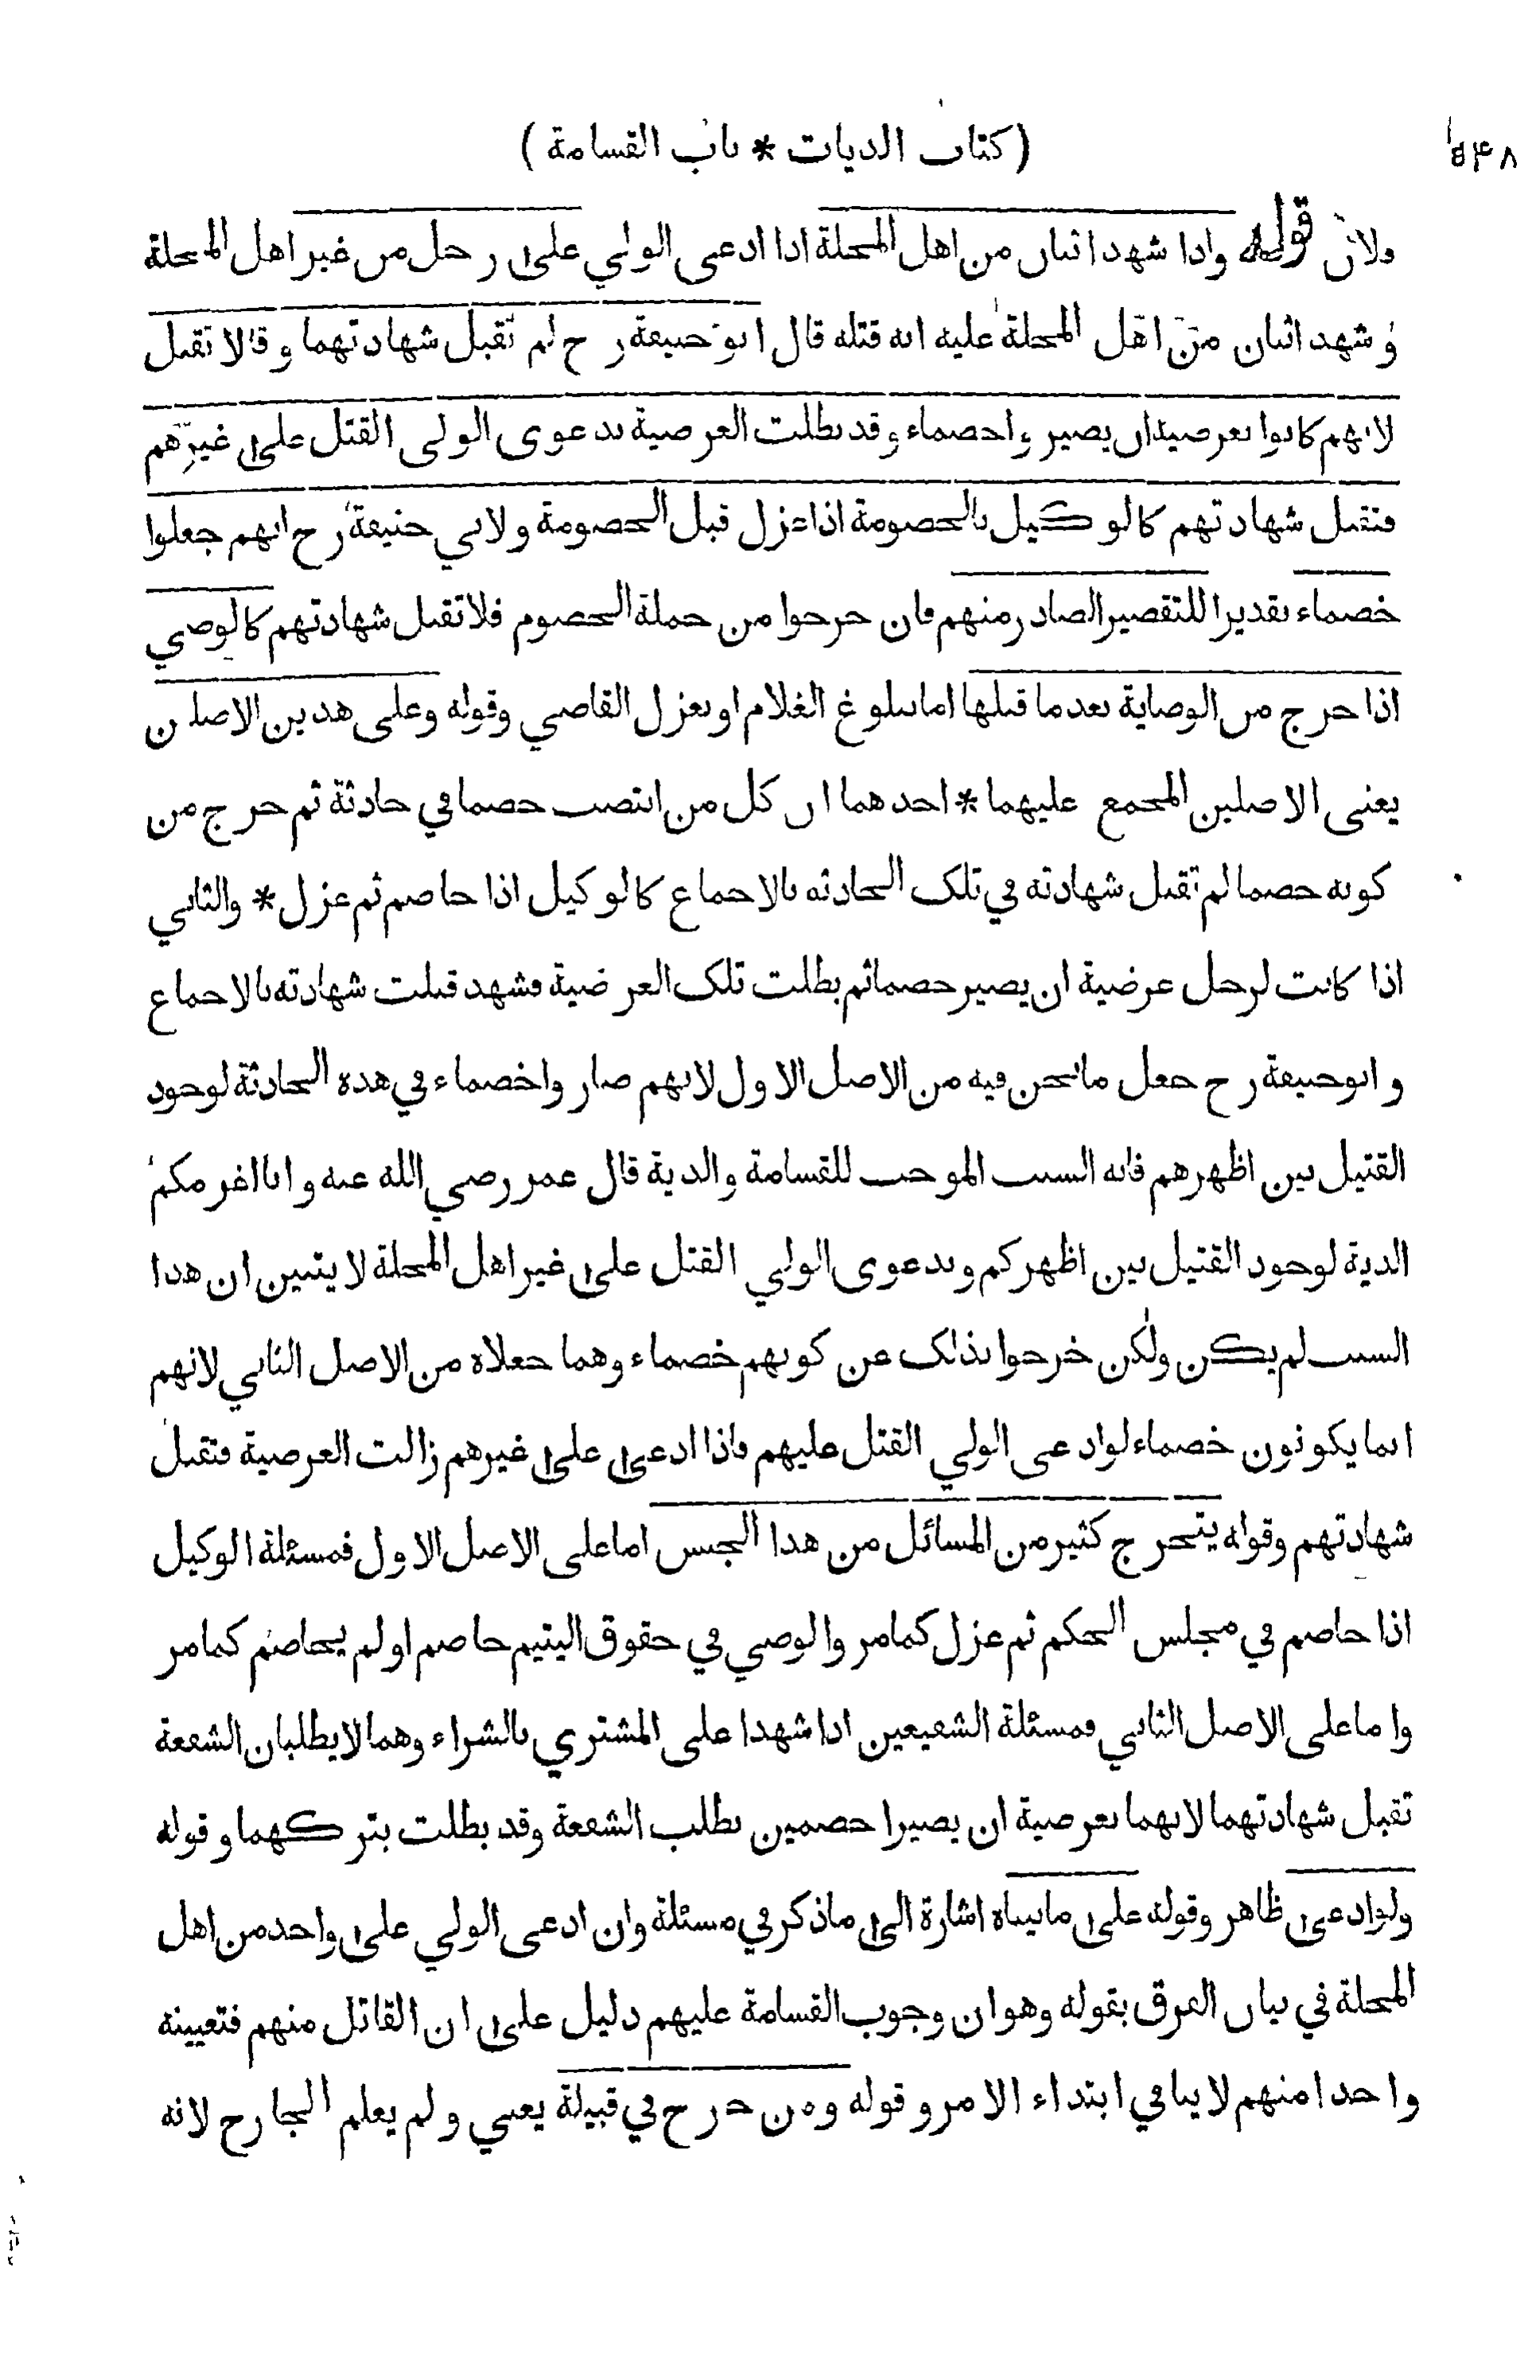 ( كتاب الديات * باب القسامة )
۵۴۸
ولان قوله واذا شهد اثنان من اهل المحلة اذا ادعى الولي على رجل من غير اهل المحلة
وشهد اثنان من اهل المحلة عليه انه قتله قال ابو حنيفة رح لم تقبل شهادتهما وقالا تقبل
لانهم كانوا بعرضية ان يصيروا خصماء وقد بطلت العرضية بدعوى الولي القتل على غيرهم
فتقبل شهادتهم كالوكيل بالخصومة اذا عزل قبل الخصومة ولابي حنيفة رح انهم جعلوا
خصماء تقديرا للتقصير الصادر منهم فان خرجوا من جملة الخصوم فلا تقبل شهادتهم كالوصي
اذا خرج من الوصاية بعد ما قبلها اما ببلوغ الغلام او بعزل القاضي وقوله وعلى هذين الاصلين
يعني الاصلين المجمع عليهما * احدهما ان كل من انتصب خصما في حادثة ثم خرج من
كونه خصما لم تقبل شهادته في تلك الحادثة بالاجماع كالوكيل اذا خاصم ثم عزل * والثاني
اذا كانت لرجل عرضية ان يصير خصما ثم بطلت تلك العرضية فشهد قبلت شهادته بالاجماع
وابو حنيفة رح جعل ما نحن فيه من الاصل الاول لانهم صاروا خصماء في هذه الحادثة لوجود
القتيل بين اظهرهم فانه السبب الموجب للقسامة والدية قال عمر رضي الله عنه وانا اغرمكم
الدية لوجود القتيل بين اظهركم وبدعوى الولي القتل على غير اهل المحلة لا يتبين ان هذا
السبب لم يكن ولكن خرجوا بذلك عن كونهم خصماء وهما جعلاه من الاصل الثاني لانهم
انما يكونون خصماء لو ادعى الولي القتل عليهم فاذا ادعى على غيرهم زالت العرضية فتقبل
شهادتهم وقوله يتخرج كثير من المسائل من هذا الجنس اما على الاصل الاول فمسئلة الوكيل
اذا خاصم في مجلس الحكم ثم عزل كما مر والوصي في حقوق اليتيم خاصم او لم يخاصم كما مر
واما على الاصل الثاني فمسئلة الشفيعين اذا شهدا على المشتري بالشراء وهما لا يطلبان الشفعة
تقبل شهادتهما لانهما بعرضية ان يصيرا خصمين بطلب الشفعة وقد بطلت بتركهما وقوله
ولو ادعى ظاهر وقوله على ما بيناه اشارة الى ما ذكر في مسئلة وان ادعى الولي على واحد من اهل
المحلة في بيان الفرق بقوله وهو ان وجوب القسامة عليهم دليل على ان القاتل منهم فتعيينه
واحدا منهم لا ينافي ابتداء الامر وقوله ومن جرح في قبيلة يعني ولم يعلم الجارح لانه